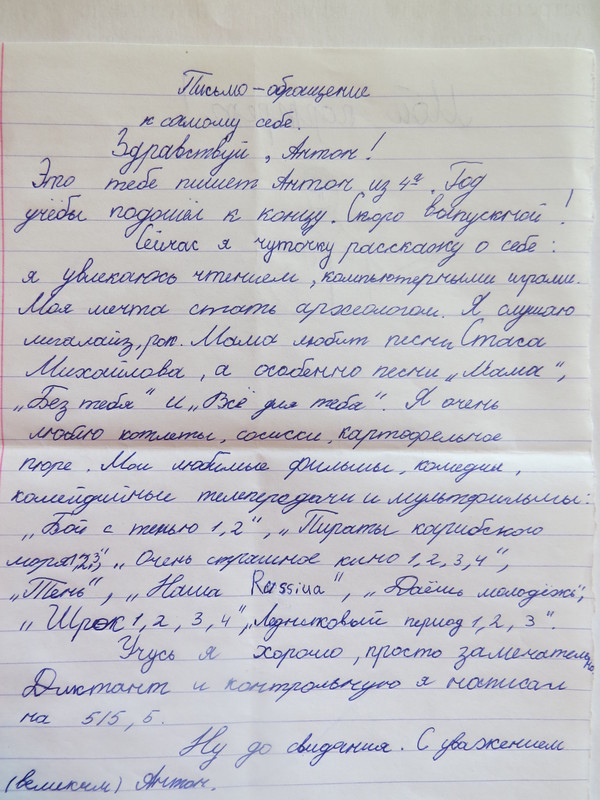 Письмо-обращение
к самому себе.
Здравствуй, Антон!
Это тебе пишет Антон из 4а. Год
учёбы подошёл к концу. Скоро выпускной!
Сейчас я чуточку расскажу о себе:
я увлекаюсь чтением, компьютерными играми.
Моя мечта стать археологом. Я слушаю
мегалайз, рэп. Мама любит песни Стаса
Михайлова, а особенно песни „Мама",
„Без тебя" и „Всё для тебя". Я очень
люблю котлеты, сосиски, картофельное
пюре. Мои любимые фильмы, комедии,
комейдийные телепередачи и мультфильмы:
„Бой с тенью 1,2", „Пираты карибского
моря 1,2,3", „Очень страшное кино 1,2,3,4",
„Тень", „Наша Russiиa", „Даёшь молодёжь",
„Шрэк 1,2,3,4", „Ледниковый период 1,2,3".
Учусь я хорошо, просто замечательно.
Диктант и контрольную я написал
на 5/5, 5.
Ну до свидания. С уважением
(великим) Антон.